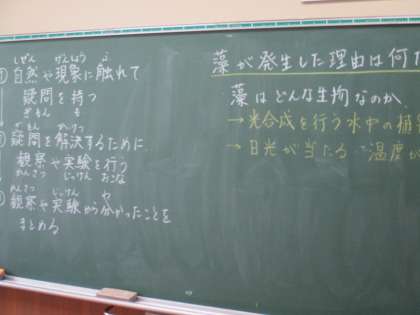 しぜん げんしょう ふ
①自然や現象に触れて
疑問を持つ
ぎもん も
ぎもん かいけつ
②疑問を解決するために
観察や実験を行う
かんさつ じっけん おこな
かんさつ じっけん わ
③観察や実験から分かったことを
まとめる
藻が発生した理由は何だ
藻はどんな生物なのか
→光合成を行う水中の植
→日光が当たる 温度が